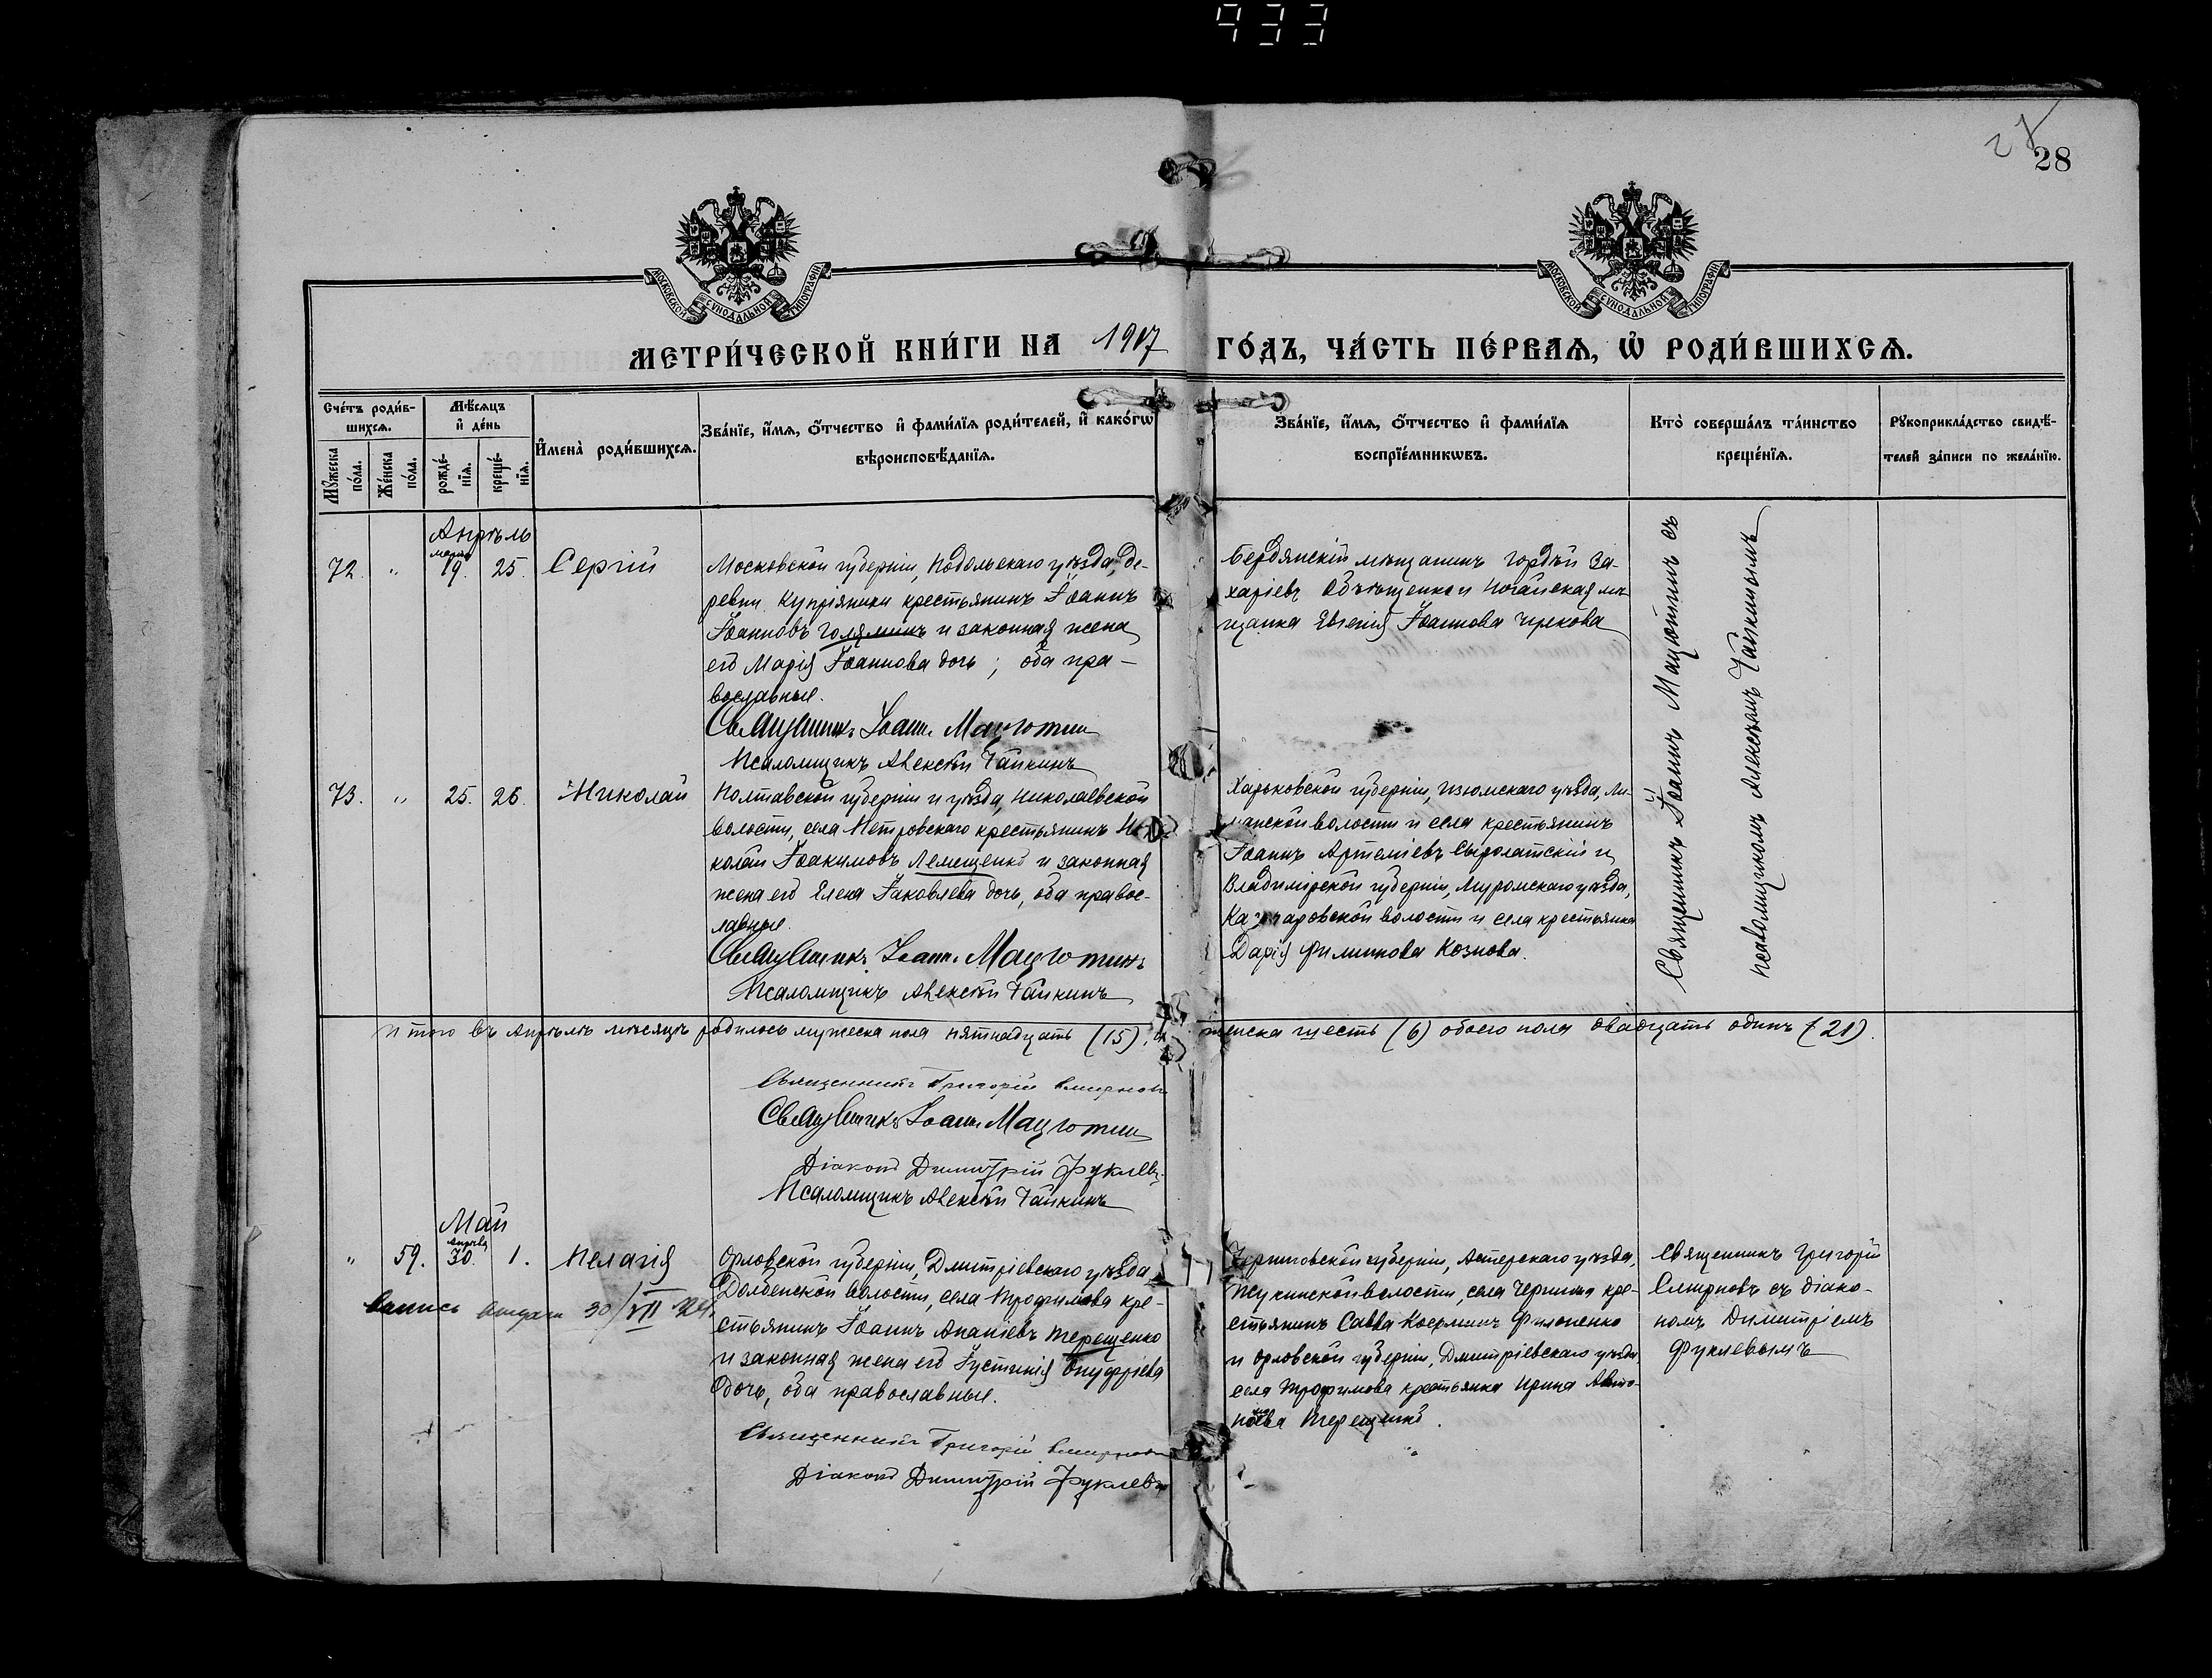 933
28
МОСКОВСКОЙ СѴНОДАЛЬНОЙ ТИПОГРАФІИ
МОСКОВСКОЙ СѴНОДАЛЬНОЙ ТИПОГРАФІИ
МЕТРИ́ЧЕСКОЙ КНИ́ГИ НА 1917 ГО́ДЪ, ЧА́СТЬ ПЕ́РВАѦ, Ѡ҆ РОДИ́ВШИХСѦ.
Сче́тъ роди́в-
шихсѧ.
Мꙋ́жеска по́ла.
Же́нска по́ла.
Мѣ́сѧцъ
и҆ де́нь
рожде́-нїѧ.
креще́-нїѧ.
И҆мена̀ роди́вшихсѧ.
Зва́нїе, и҆́мѧ, ѻ҆́тчество и҆ фами́лїѧ роди́телей, и҆ како́гѡ
вѣроисповѣ́данїѧ.
Зва́нїе, и҆́мѧ, ѻ҆́тчество и҆ фами́лїѧ
воспрїе́мникѡвъ.
Кто̀ соверша́лъ та́инство
креще́нїѧ.
Рꙋкоприкла́дство свидѣ́-
телей за́писи по жела́нїю.
Апрѣль
72. " марта 19. 25. Сергій
Московской губерніи, Подольскаго уѣзда, де-
ревни Купріянихи крестьянинъ Іоаннъ
Іоанновъ Голяминъ и законная жена
его Марія Іоаннова дочь; оба пра-
вославные.
Священникъ Іоаннъ Мацютин
Псаломщикъ Алексѣй Тайкинъ
Бердянскій мѣщанинъ Гордѣй За-
харіевъ и Ногайская мѣ-
щанка Евгенія Іоаннова Чулкова
Священникъ Іоаннъ Мацютинъ съ
псаломщикомъ Алексѣемъ Тайкинымъ
73. " 25. 26. Николай
Полтавской губерніи и уѣзда, Николаевской
волости, села Петровскаго крестьянинъ Ни-
колай Іоакимовъ Лемещенко и законная
жена его Елена Іаковлева дочь, оба правос-
лавные.
Священникъ Іоаннъ Мацютинъ
Псаломщикъ Алексѣй Тайкинъ
Харьковской губерніи, Изюмскаго уѣзда, Ли-
манской волости и села крестьянинъ
Іоаннъ Артеміевъ Сыроватскій и
Владимірской губерніи, Муромскаго уѣзда,
волости и села крестьянка
Дарія Филиппова Козлова.
Итого въ Апрѣлѣ мѣсяцѣ родилось мужеска пола пятнадцать (15), женска шесть (6) обоего пола двадцать одинъ (21).
Священникъ Григорій Смирновъ
Священникъ Іоаннъ Мацютин
Діаконъ Димитрій Фуклевъ
Псаломщикъ Алексѣй Тайкинъ
Май
" 59. Апрѣля 30. 1. Пелагія
30/VII
Орловской губерніи, Дмитріевскаго уѣзда,
Долбенской волости, села Трофимова кре-
стьянинъ Іоаннъ Ананіевъ Терещенко
и законная жена его Іустинія Онуфріева
дочь, оба православные.
Священникъ Григорій Смирновъ
Діаконъ Димитрій Фуклевъ
Черниговской губерніи, уѣзда,
Жукинской волости, села кре-
стьянинъ Савва Филоненко
и Орловской губерніи, Дмитріевскаго уѣзда,
села Трофимова крестьянка Ирина
Терещенко.
Священникъ Григорій
Смирновъ съ діако-
номъ Димитріемъ
Фуклевымъ